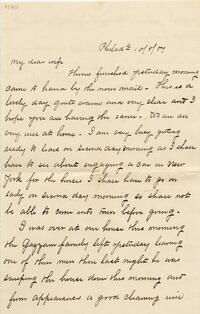 Philad<sup>a</sup> 10/8/04
My dear wife
Thine finished yesterday morning
came to hand by the noon mail. This is a
lovely day quite warm and very clear and I
hope you are having the same. We are all
very well at home. I am very busy getting
ready to leave on Monday morning as I shall
have to see about engaging a car in New
York for the horses I shall have to go on
early on Monday morning so shall not
be able to come into town before going.
I was over at our house this morning
the Gazzam family left yesterday leaving
one of their men there last night he was
sweeping the house down this morning and
from appearances a good cleaning will